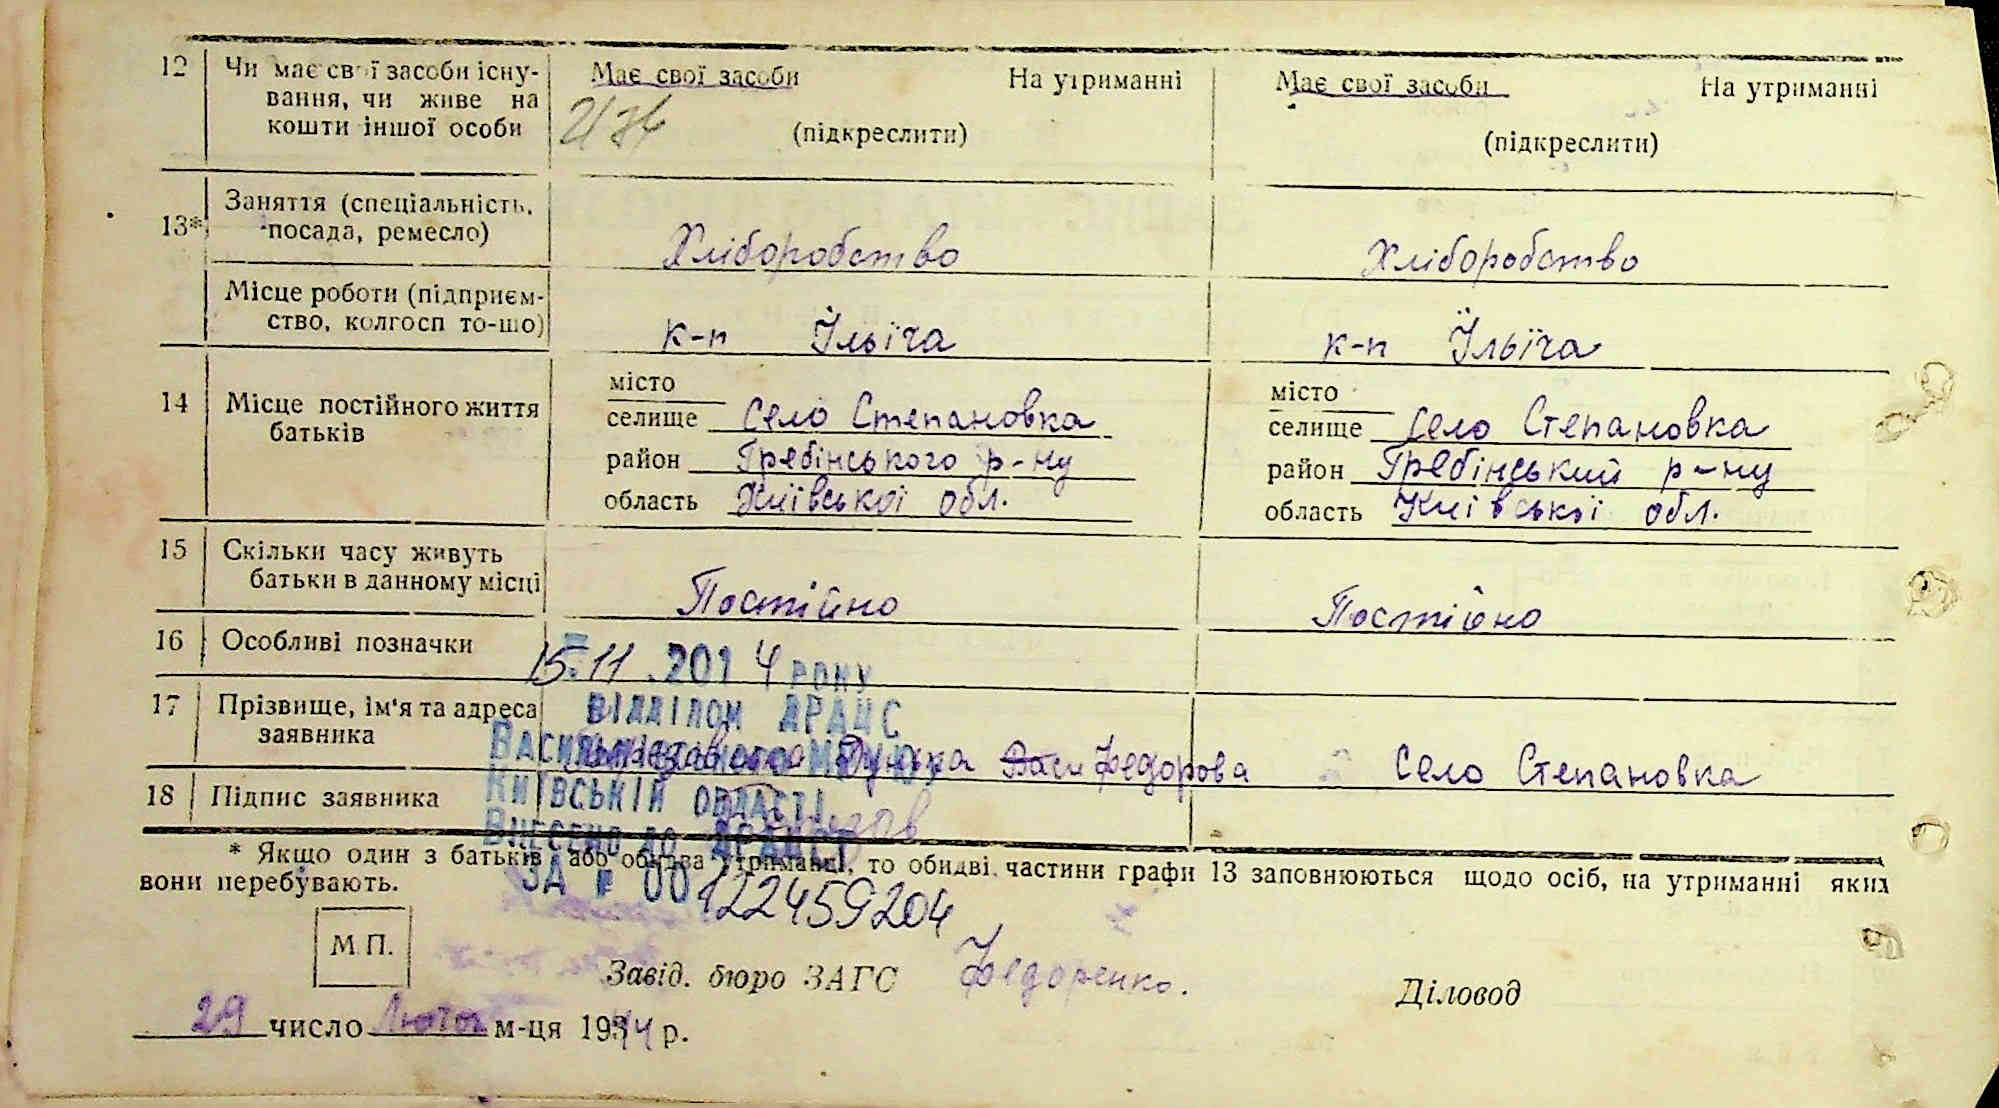 12 Чи має свої засоби існу- Має свої засоби На утриманні Має свої засоби На утриманні
вання, чи живе на
кошти іншої особи (підкреслити) (підкреслити)
13* Заняття (спеціальність,
посада, ремесло) Хліборобство Хліборобство
Місце роботи (підприєм-
ство, колгосп то-що) к-п Ілыїча к-п Їльїча
місто місто
14 Місце постійного життя селище Село Степановка селище село Степановка
батьків район Гребінського р-ну район Гребінський р-ну
область Київської обл. область Київської обл.
15 Скільки часу живуть
батьки в данному місці Постійно Постійно
16 Особливі позначки
15.11.2014 РОКУ
ВІДДІЛОМ ДРАЦС
17 Прізвище, ім'я та адреса
заявника Федорова Село Степановка
ВАСИЛЬКІВСЬКОГО МРУЮ
КИЇВСЬКІЙ ОБЛАСТІ
18 Підпис заявника
ВНЕСЕНО ДО ДРАЦСГ
* Якщо один з батьків, або обидва утриманці, то обидві частини графи 13 заповнюються щодо осіб, на утриманні яких
вони перебувають.
ЗА № 00122459204
М.П.
Завід. бюро ЗАГС Федоренко. Діловод
29 число Лютого м-ця 1944 р.